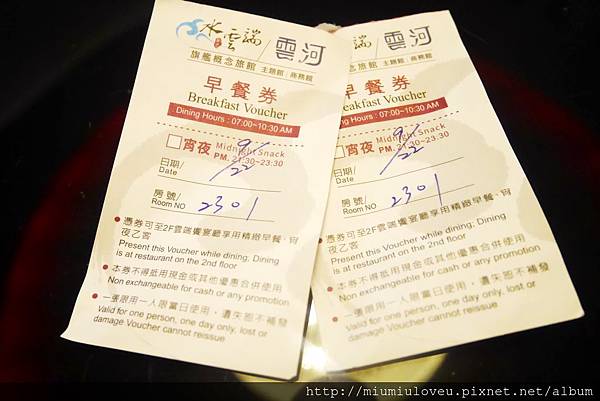 水雲端
雲河
旗艦概念旅館 主題館 商務館
早餐券
Breakfast Voucher
Dining Hours : 07:00~10:30 AM
宵夜 Midnight Snack
PM. 21:30~23:30
日期/
Date
9/22
房號/
Room NO
2301
憑券可至2F雲端饗宴廳享用精緻早餐、宵
夜乙客
Present this Voucher while dining; Dining
is at restaurant on the 2nd floor
本券不得抵用現金或其他優惠合併使用
Non exchangeable for cash or any promotion
一張限用一人限當日使用,遺失恕不補發
Valid for one person, one day only, lost or
damage Voucher cannot reissue
雲河
端
旗艦概念旅館 主題館 商務館
早餐券
Breakfast Voucher
Dining Hours : 07:00~10:30 AM
宵夜 Midnight Snack
PM. 21:30~23:30
日期/
Date
9/22
房號/
Room NO
2301
憑券可至2F雲端饗宴廳享用精緻早餐、宵
夜乙客
Present this Voucher while dining; Dining
is at restaurant on the 2nd floor
本券不得抵用現金或其他優惠合併使用
Non exchangeable for cash or any promotion
一張限用一人限當日使用,遺失恕不補發
Valid for one person, one day only, lost or
damage Voucher cannot reissue
http://miumiuloveu.pixnet.net/album